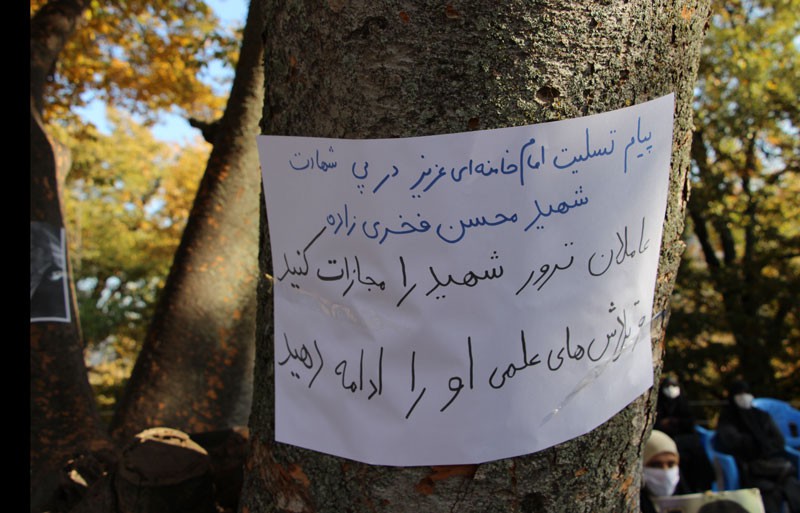 پیام تسلیت امام خامنه‌ای عزیز در پی شهادت
شهید محسن فخری زاده
عاملان ترور شهید را مجازات کنید
و تلاش‌های علمی او را ادامه دهید